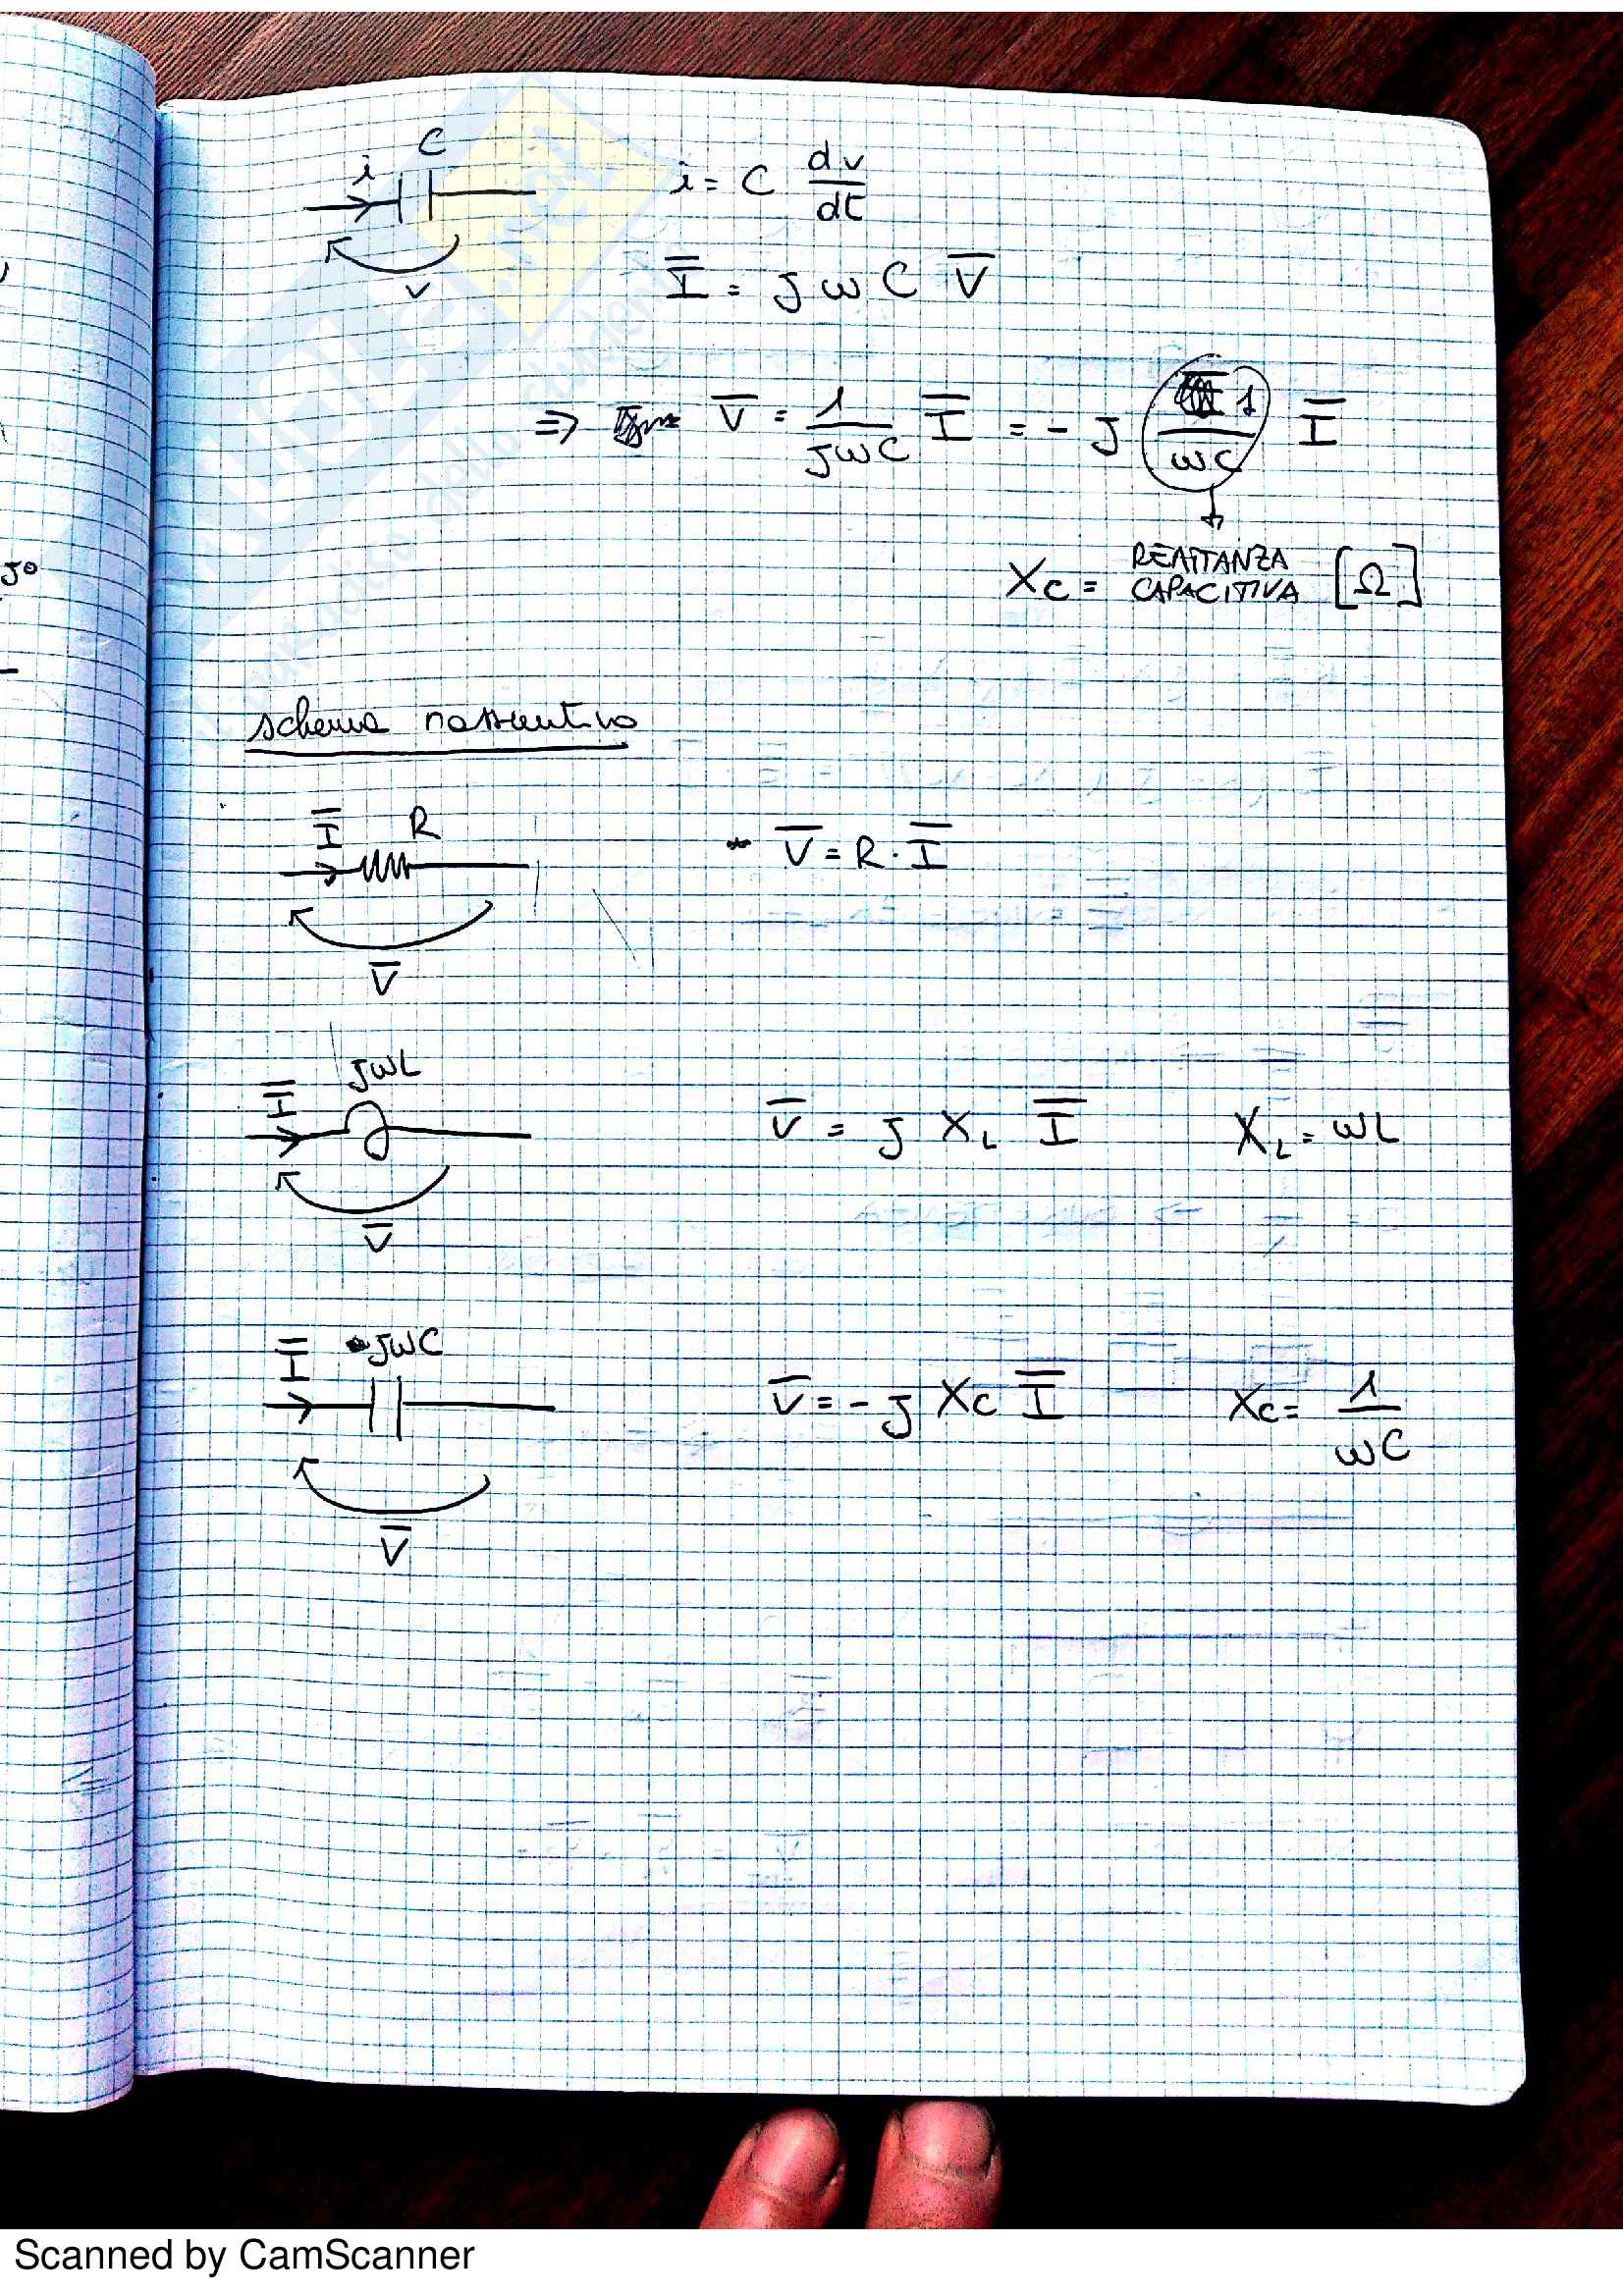 C
i
i = C dv/dt
v
I̅ = jωC V̅
⇒ V̅ = 1/jωC I̅ = -j 1/ωC I̅
Xc = REATTANZA CAPACITIVA [Ω]
schema riassuntivo
I̅ R
V̅ = R · I̅
V̅
jωL
I̅
V̅ = j X_L I̅ X_L = ωL
V̅
I̅ jωC
V̅ = -j Xc I̅ Xc = 1/ωC
V̅
Scanned by CamScanner